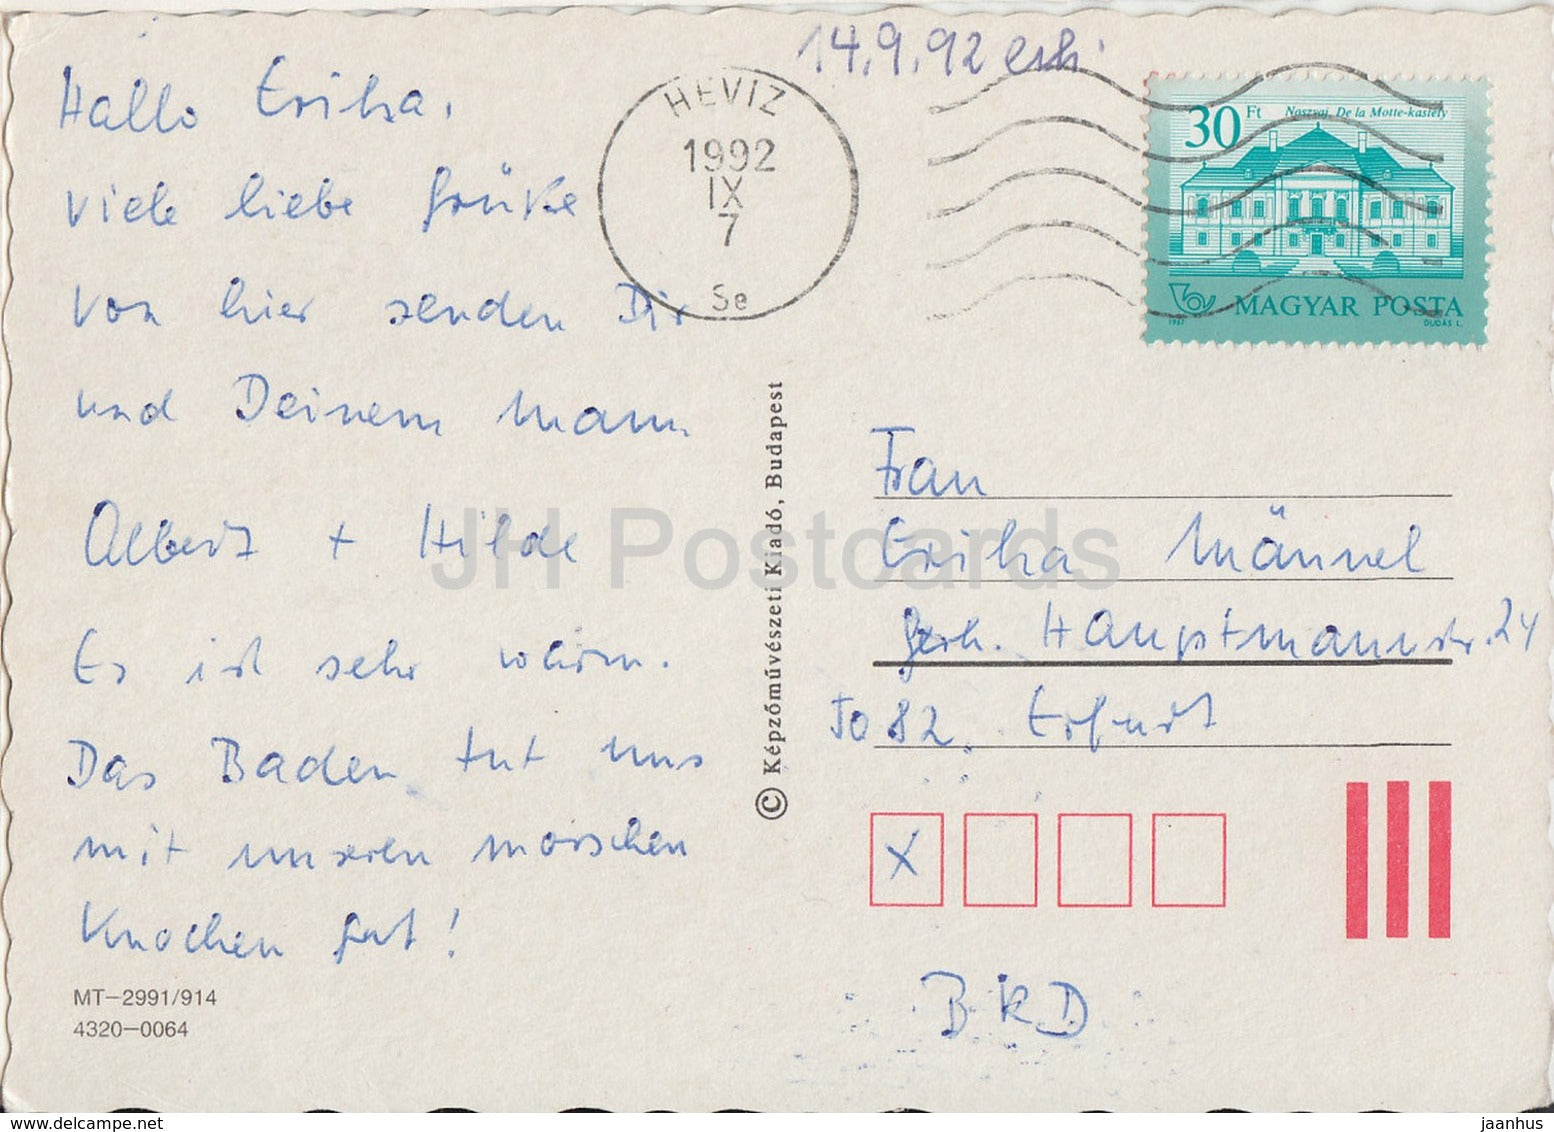 14.9.92 erh.
Hallo Erika,
viele liebe Grüße
von hier senden Dir
und Deinem Mann
Albert + Hilde
Es ist sehr warm.
Das Baden tut uns
mit unseren morschen
Knochen gut!
MT-2991/914
4320-0064
HÉVIZ
1992
IX
7
Se
30 Ft
Noszvaj, De la Motte-kastély
MAGYAR POSTA
1987
DUDÁS L.
© Képzőművészeti Kiadó, Budapest
Frau
Erika Männel
Gerh. Hauptmannstr. 24
To 82 Erfurt
X
BRD
JH Postcards
delcampe.net
jaanhus